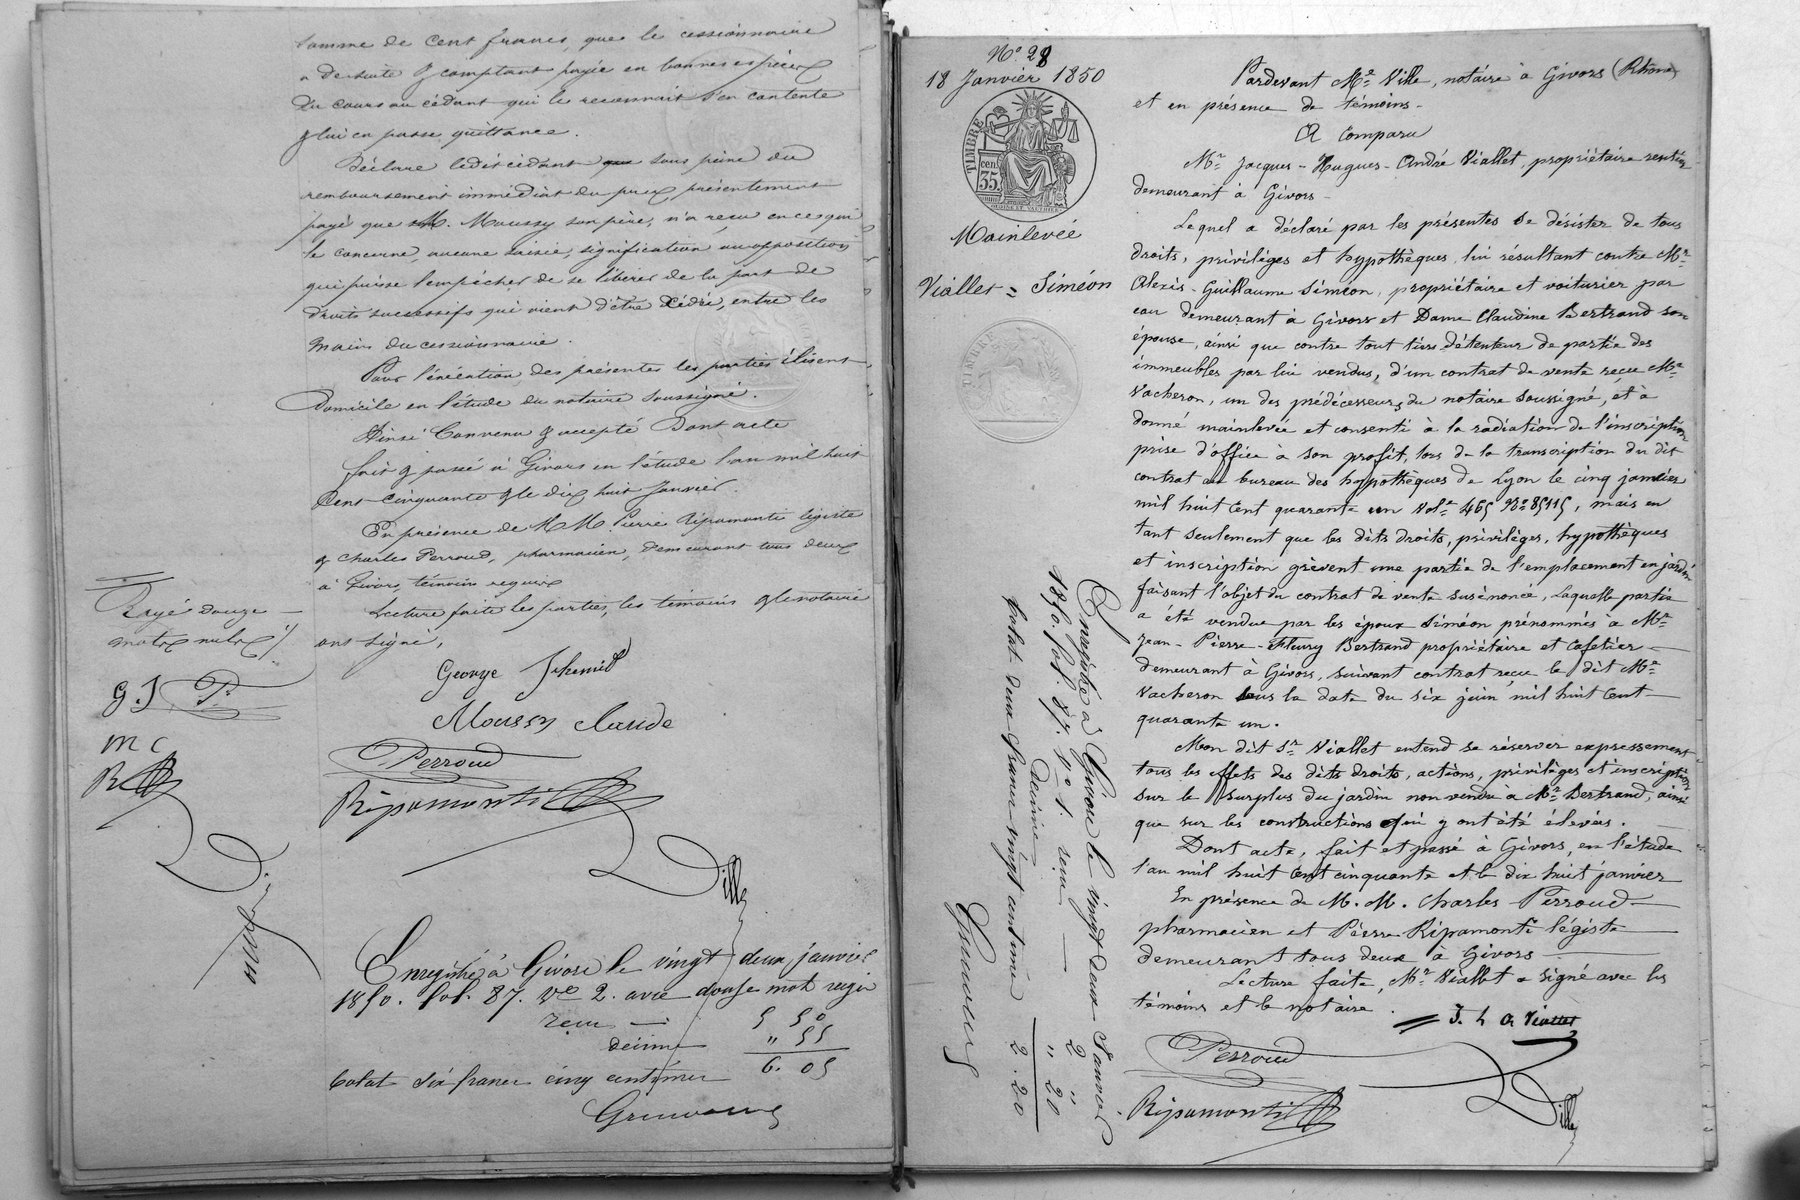 somme de cent francs, que le cessionnaire
a de suite & comptant payée en bonnes espèces
du cours au cédant qui le reconnait s'en contente
& lui en passe quittance.
Déclare ledit cédant que sous peine du
remboursement immédiat du prix présentement
payé que M. Moussy son père, n'a reçu en ce qui
le concerne, aucune saisie, signification ou opposition
qui puisse l'empêcher de se libérer de la part de
droits successifs qui vient d'être cédée, entre les
mains du cessionnaire.
Pour l'exécution des présentes les parties élisent
domicile en l'étude du notaire soussigné.
Ainsi convenu & accepté Dont acte
fait & passé à Givors en l'étude l'an mil huit
cent cinquante & le dix huit Janvier.
En présence de M M Pierre Ripamonti légiste
& Charles Perroud, pharmacien, demeurant tous deux
à Givors, témoins requis
Lecture faite les parties, les témoins & le notaire
ont signé,
Rayé douze
mots nuls
G. S P.
m c
R
George Schmid
Moussy Claude
Perroud
Ripamonti
Ville
Ville
Enregistré à Givors le vingt deux janvier
1850. fol. 87. Vo 2. avec douze mots rayés
reçu — 5 50
décime " 55
6. 05
total six francs cinq centimes
No 28
18 Janvier 1850
TIMBRE
cen.
35.
Mainlevée
Viallet = Siméon
Pardevant Me Ville, notaire à Givors (Rhône)
et en présence de témoins -
A Comparu
Mr Jacques - Hugues - André Viallet, propriétaire rentier
demeurant à Givors -
Lequel a déclaré par les présentes se désister de tous
droits, privilèges et hypothèques, lui résultant contre Mr
Alexis - Guillaume Siméon, propriétaire et voiturier par
eau demeurant à Givors et Dame Claudine Bertrand son
épouse, ainsi que contre tout tiers détenteur de partie des
immeubles par lui vendus, d'un contrat de vente reçu Me
Vacheron, un des prédécesseurs du notaire soussigné, et à
donné mainlevée et consenti à la radiation de l'inscription
prise d'office à son profit, lors de la transcription du dit
contrat au bureau des hypothèques de Lyon le cinq janvier
mil huit cent quarante un Vol. 465 No 85115, mais en
tant seulement que les dits droits, privilèges, hypothèques
et inscription grèvent une partie de l'emplacement en jardin
faisant l'objet du contrat de vente susénoncé, laquelle partie
a été vendue par les époux Siméon prénommés à Mr
Jean - Pierre - Fleury Bertrand propriétaire et cafetier —
demeurant à Givors, suivant contrat reçu le dit Me
Vacheron sous la date du six juin mil huit cent
quarante un.
Mon dit Sr Viallet entend se réserver expressement
tous les effets des dits droits, actions, privilèges et inscription
sur le surplus du jardin non vendu à Mr Bertrand, ainsi
que sur les constructions qui y ont été élevées. —
Dont acte, fait et passé à Givors, en l'étude
l'an mil huit cent cinquante et le dix huit janvier
En présence de M. M. Charles Perroud —
pharmacien et Pierre Ripamonti légiste
demeurant tous deux à Givors —
Lecture faite, Mr Viallet a signé avec les
témoins et le notaire.
J. h a Viallet
Perroud
Ripamonti
Ville
Enregistré à Givors le vingt deux Janvier
1850. fol. 87. Vo 1. reçu — 2 "
décime " 20
total deux francs vingt centimes 2. 20